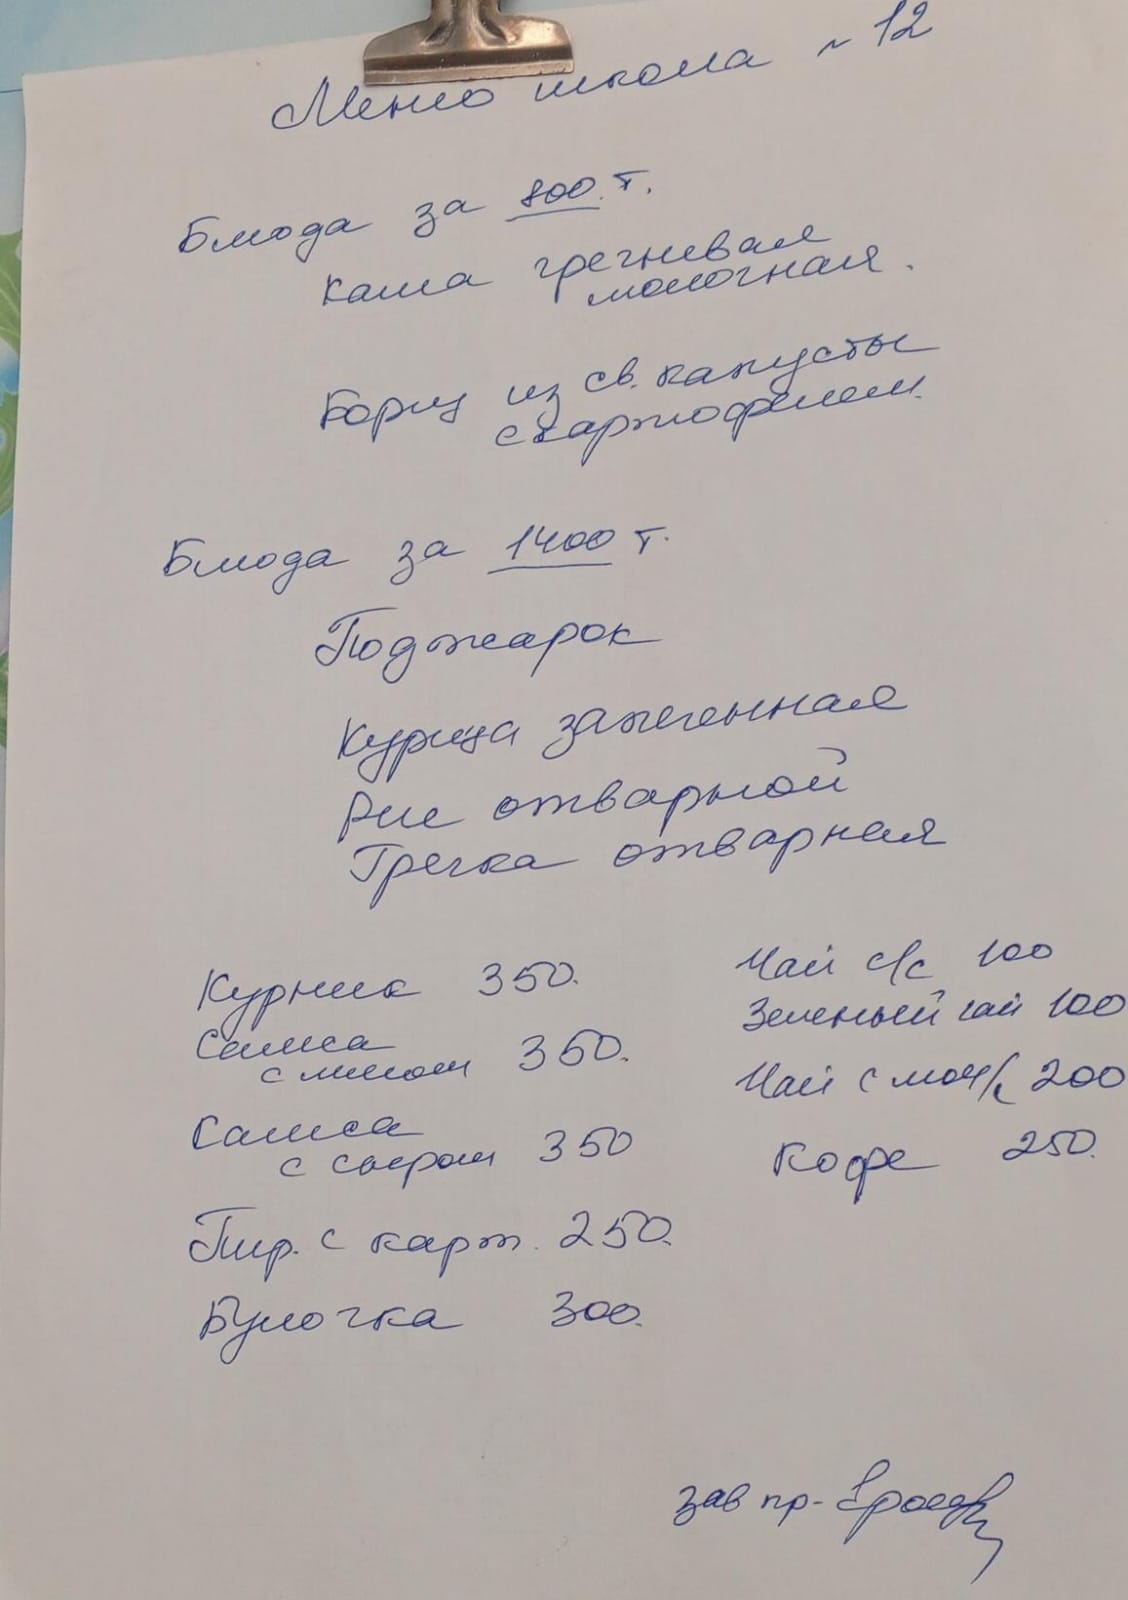 Меню школа № 12
Блюда за 800 т.
Каша гречневая
молочная.
Борщ из св. капусты
с картофелем.
Блюда за 1400 т.
Поджарок
Курица запеченная
Рис отварной
Гречка отварная
Курник 350.
Самса
с мясом 350.
Самса
с сыром 350
Пир. с карт. 250.
Булочка 300.
Чай с/с 100
Зеленый чай 100
Чай с мол/с 200
Кофе 250.
зав пр-